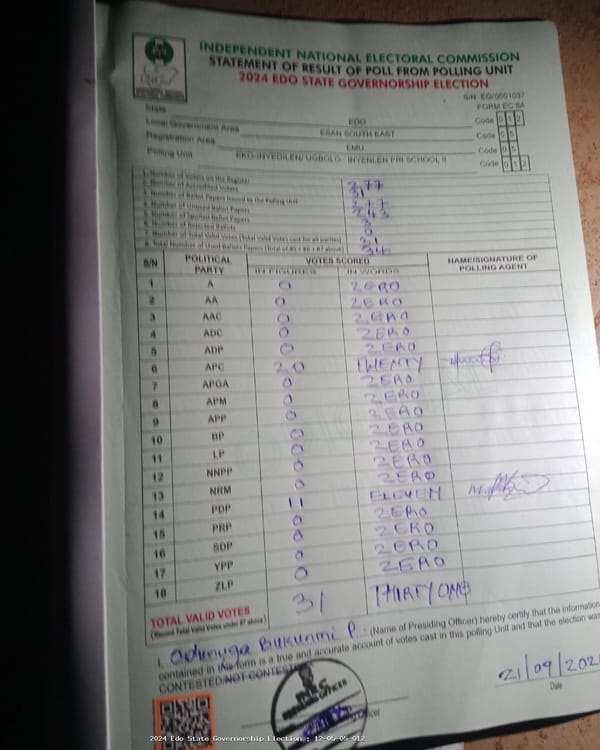 INDEPENDENT NATIONAL ELECTORAL COMMISSION
STATEMENT OF RESULT OF POLL FROM POLLING UNIT
2024 EDO STATE GOVERNORSHIP ELECTION
S/N: EG/0001037
FORM EC 8A
State EDO Code 0 1 2
Local Government Area ESAN SOUTH EAST Code 0 5
Registration Area EMU Code 0 5
Polling Unit EKO-INYEDILEN/ UGBOLO- INYENLEN PRI SCHOOL II Code 0 1 2
1. Number of Voters on the Register 277
2. Number of Accredited Voters 31
3. Number of Ballot Papers Issued to the Polling Unit 277
4. Number of Unused Ballot Papers 243
5. Number of Spoiled Ballot Papers 3
6. Number of Rejected Ballots 0
7. Number of Total Valid Votes (Total Valid Votes cast for all parties) 31
8. Total Number of Used Ballot Papers (Total of #5 + #6 + #7 above) 34
S/N POLITICAL PARTY VOTES SCORED NAME/SIGNATURE OF POLLING AGENT
IN FIGURES IN WORDS
1 A 0 ZERO
2 AA 0 ZERO
3 AAC 0 ZERO
4 ADC 0 ZERO
5 ADP 0 ZERO
6 APC 20 TWENTY
7 APGA 0 ZERO
8 APM 0 ZERO
9 APP 0 ZERO
10 BP 0 ZERO
11 LP 0 ZERO
12 NNPP 0 ZERO
13 NRM 0 ZERO
14 PDP 11 ELEVEN
15 PRP 0 ZERO
16 SDP 0 ZERO
17 YPP 0 ZERO
18 ZLP 0 ZERO
TOTAL VALID VOTES 31 THIRTY ONE
(Record Total Valid Votes under #7 above)
I, Odunuga Bukunmi P. (Name of Presiding Officer) hereby certify that the information
contained in this form is a true and accurate account of votes cast in this polling Unit and that the election was
CONTESTED/NOT CONTESTED
21/09/202
Date
2024 Edo State Governorship Election : 12-05-05-012